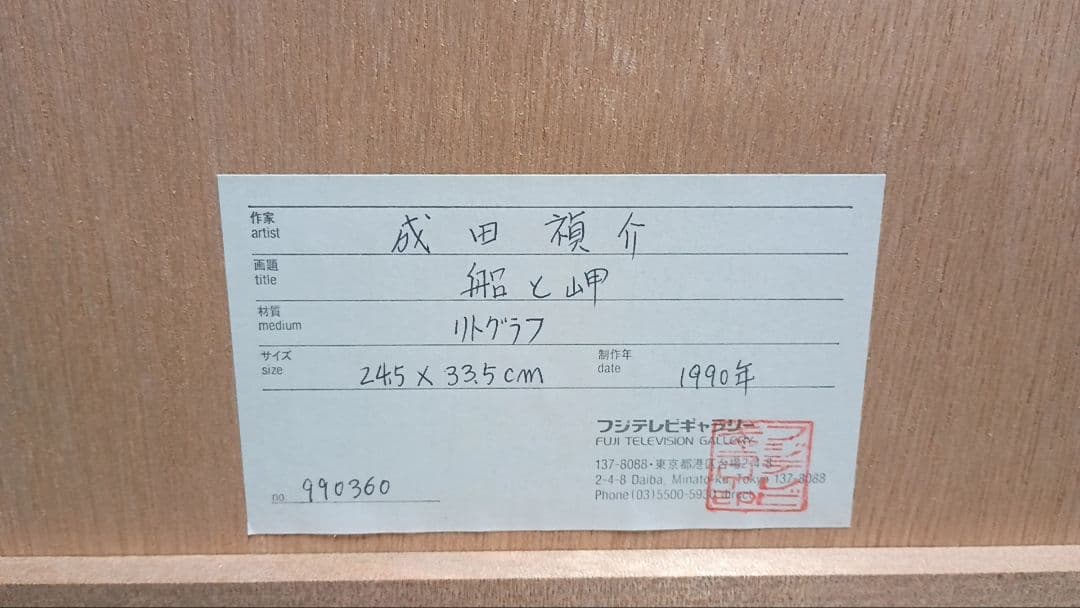 作家
artist
成田禎介
画題
title
船と岬
材質
medium
リトグラフ
サイズ
size
24.5 × 33.5cm
制作年
date
1990年
フジテレビギャラリー
FUJI TELEVISION GALLERY
137-8088・東京都港区台場2-4-8
2-4-8 Daiba, Minato-ku, Tokyo 137-8088
Phone (03)5500-5930 direct
no. 990360